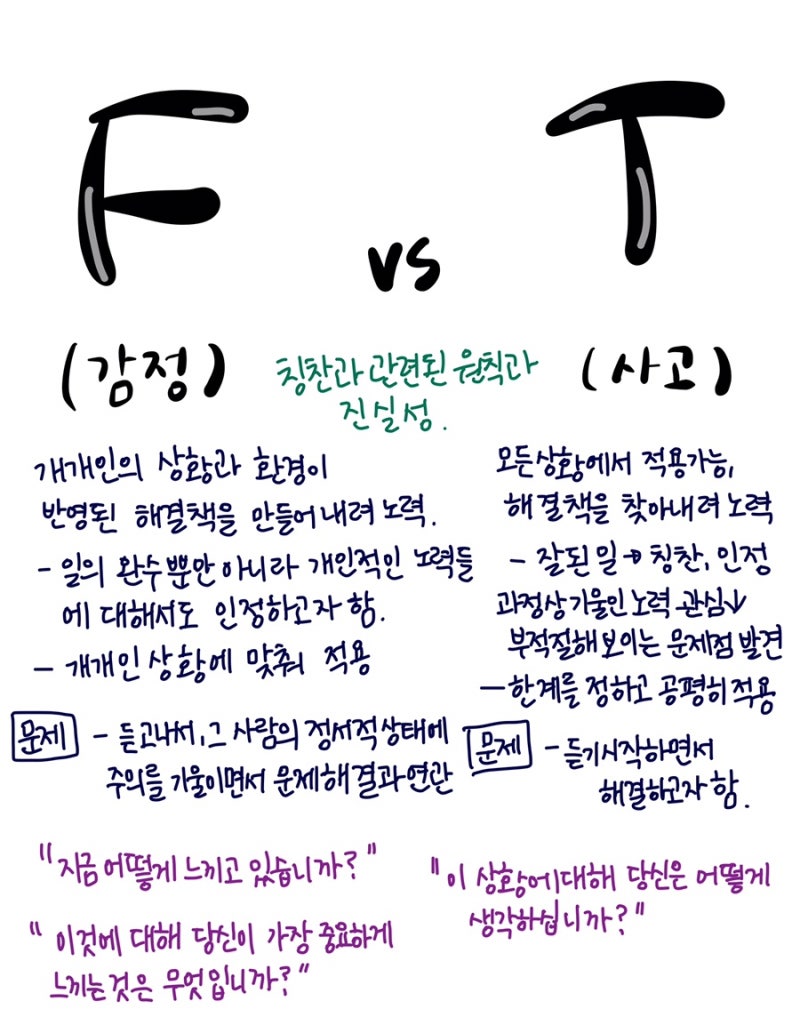 F vs T
(감정)
칭찬과 관련된 원칙과
진실성.
(사고)
개개인의 상황과 환경이
반영된 해결책을 만들어내려 노력.
- 일의 완수뿐만 아니라 개인적인 노력들
에 대해서도 인정하고자 함.
- 개개인 상황에 맞춰 적용
문제 - 듣고나서, 그 사람의 정서적상태에
주의를 기울이면서 문제해결과 연관
"지금 어떻게 느끼고 있습니까?"
"이것에 대해 당신이 가장 중요하게
느끼는것은 무엇입니까?"
모든상황에서 적용가능,
해결책을 찾아내려 노력
- 잘된 일 → 칭찬, 인정
과정상 기울인 노력 관심↓
부적절해보이는 문제점 발견
- 한계를 정하고 공평히 적용
문제 - 듣기시작하면서
해결하고자 함.
"이 상황에대해 당신은 어떻게
생각하십니까?"